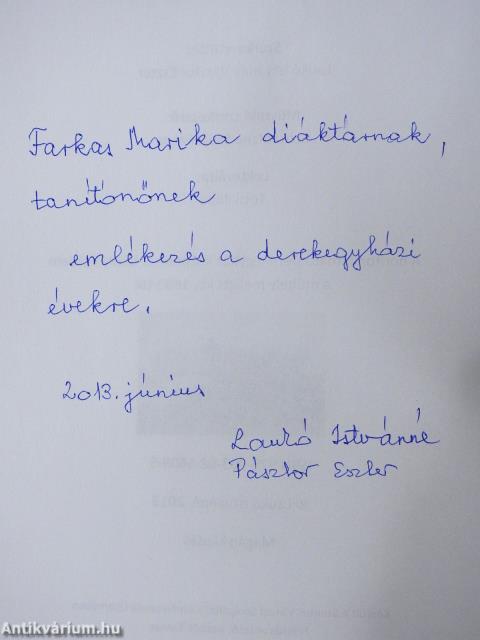 Farkas Marika diáktárnak,
tanítónőnek
emlékezés a derekegyházi
évekre.
2013. június
Laukó Istvánné
Pásztor Eszter
Antikvárium.hu